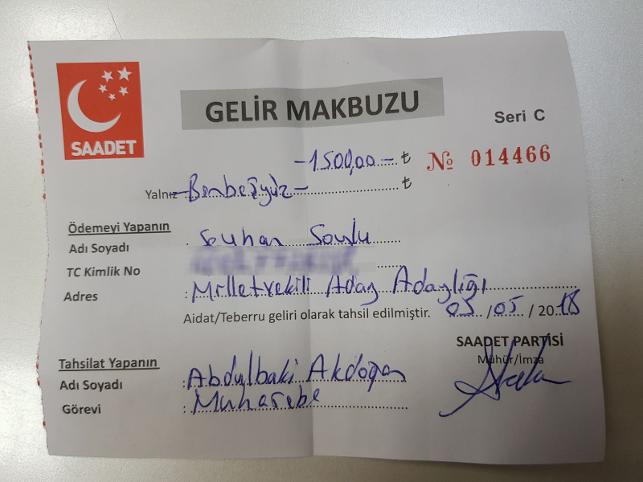 SAADET
GELİR MAKBUZU
Seri C
-1500,00- ₺
№ 014466
Yalnız -Binbeşyüz- ₺
Ödemeyi Yapanın
Adı Soyadı : Seyhan Soylu
TC Kimlik No
Adres : Milletvekili Aday Adaylığı
Aidat/Teberru geliri olarak tahsil edilmiştir. 03/05/2018
SAADET PARTİSİ
Mühür/İmza
Tahsilat Yapanın
Adı Soyadı : Abdulbaki Akdoğan
Görevi : Muhasebe